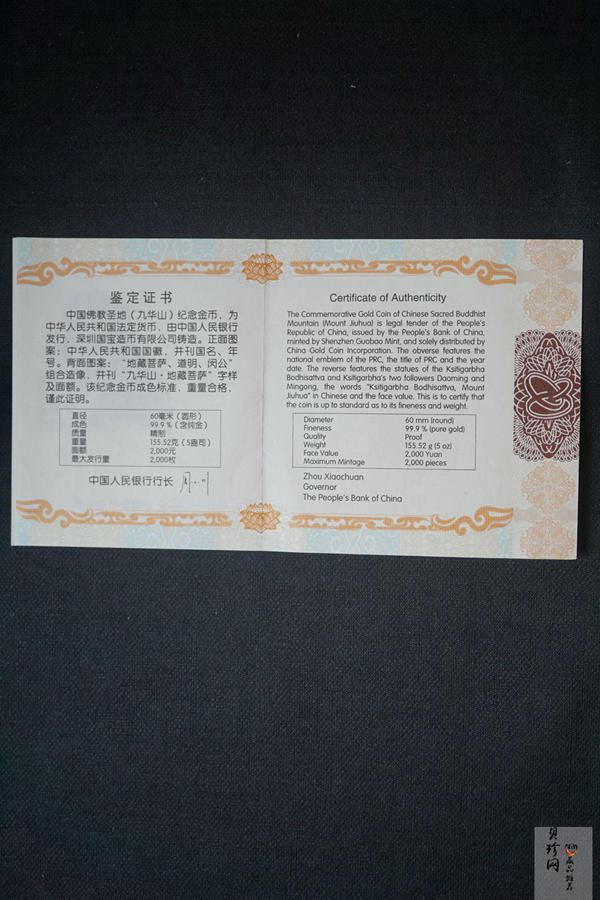 鉴定证书
中国佛教圣地（九华山）纪念金币，为
中华人民共和国法定货币，由中国人民银行
发行，深圳国宝造币有限公司铸造。正面图
案：中华人民共和国国徽，并刊国名、年
号。背面图案：“地藏菩萨、道明、闵公”
组合造像，并刊“九华山·地藏菩萨”字样
及面额。该纪念金币成色标准，重量合格，
谨此证明。
直径 60毫米（圆形）
成色 99.9％（含纯金）
质量 精制
重量 155.52克（5盎司）
面额 2,000元
最大发行量 2,000枚
中国人民银行行长
Certificate of Authenticity
The Commemorative Gold Coin of Chinese Sacred Buddhist
Mountain (Mount Jiuhua) is legal tender of the People's
Republic of China, issued by the People's Bank of China,
minted by Shenzhen Guobao Mint, and solely distributed by
China Gold Coin Incorporation. The obverse features the
national emblem of the PRC, the title of PRC and the year
date. The reverse features the statues of the Ksitigarbha
Bodhisattva and Ksitigarbha's two followers Daoming and
Mingong, the words "Ksitigarbha Bodhisattva, Mount
Jiuhua" in Chinese and the face value. This is to certify that
the coin is up to standard as to its fineness and weight.
Diameter 60 mm (round)
Fineness 99.9 % (pure gold)
Quality Proof
Weight 155.52 g (5 oz)
Face Value 2,000 Yuan
Maximum Mintage 2,000 pieces
Zhou Xiaochuan
Governor
The People's Bank of China
贝珍网